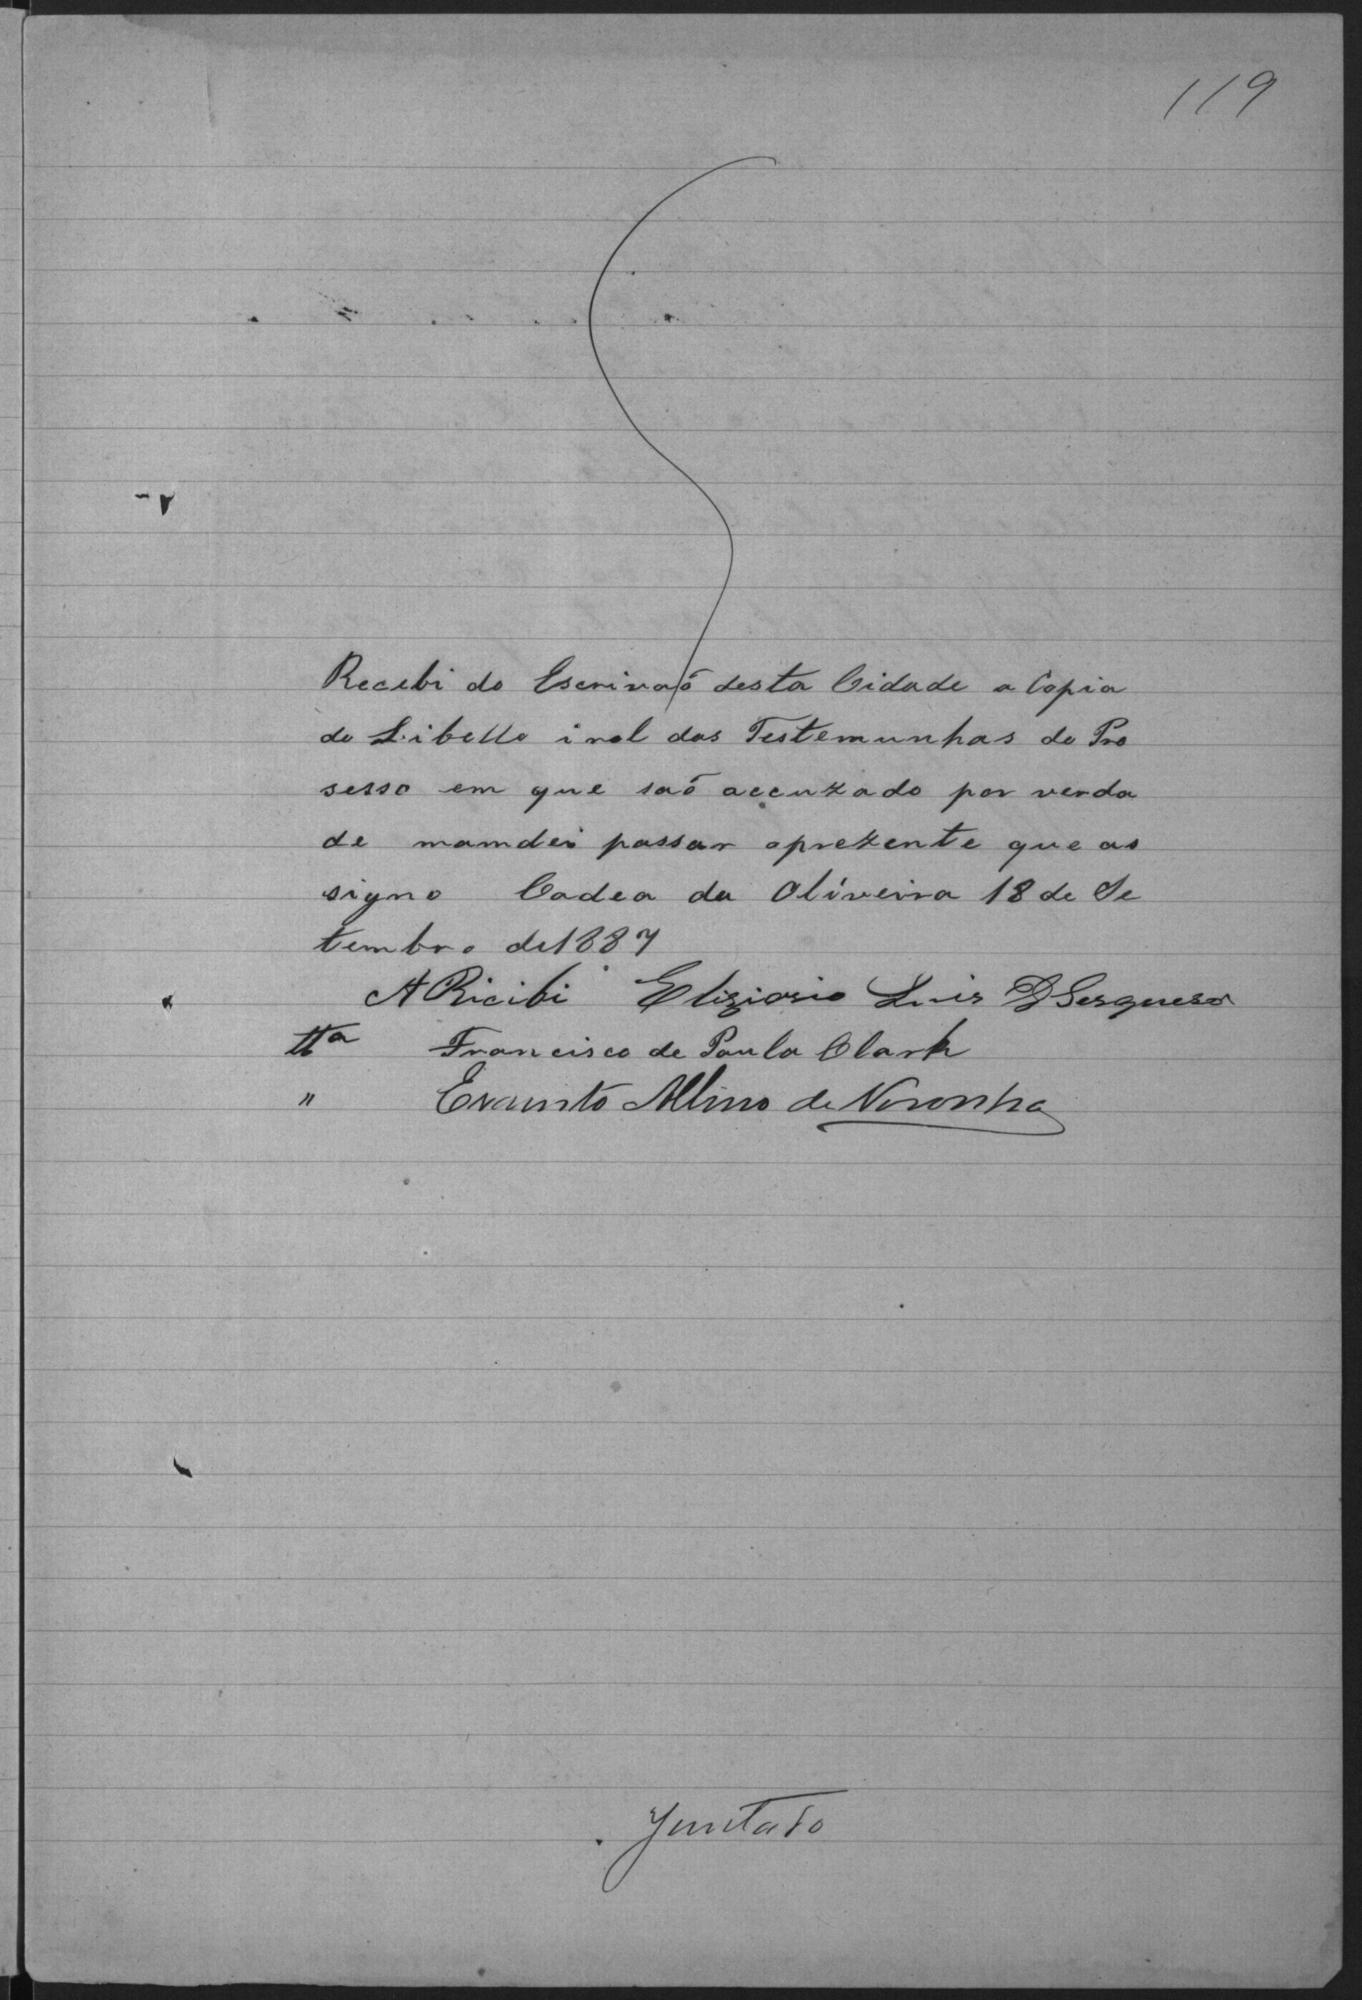 119
Recebi do Escrivaõ desta Cidade a Copia
do Libello irol das Testemunhas do Pro
sesso em que saõ accuzado por verda
de mamdei passar aprezente que as
signo Cadea da Oliveira 18 de Se
tembro de 1887
A Ricibi Eliziario Luis D
tta Francisco de Paula Clark
" Albino de Noronha
Juntado